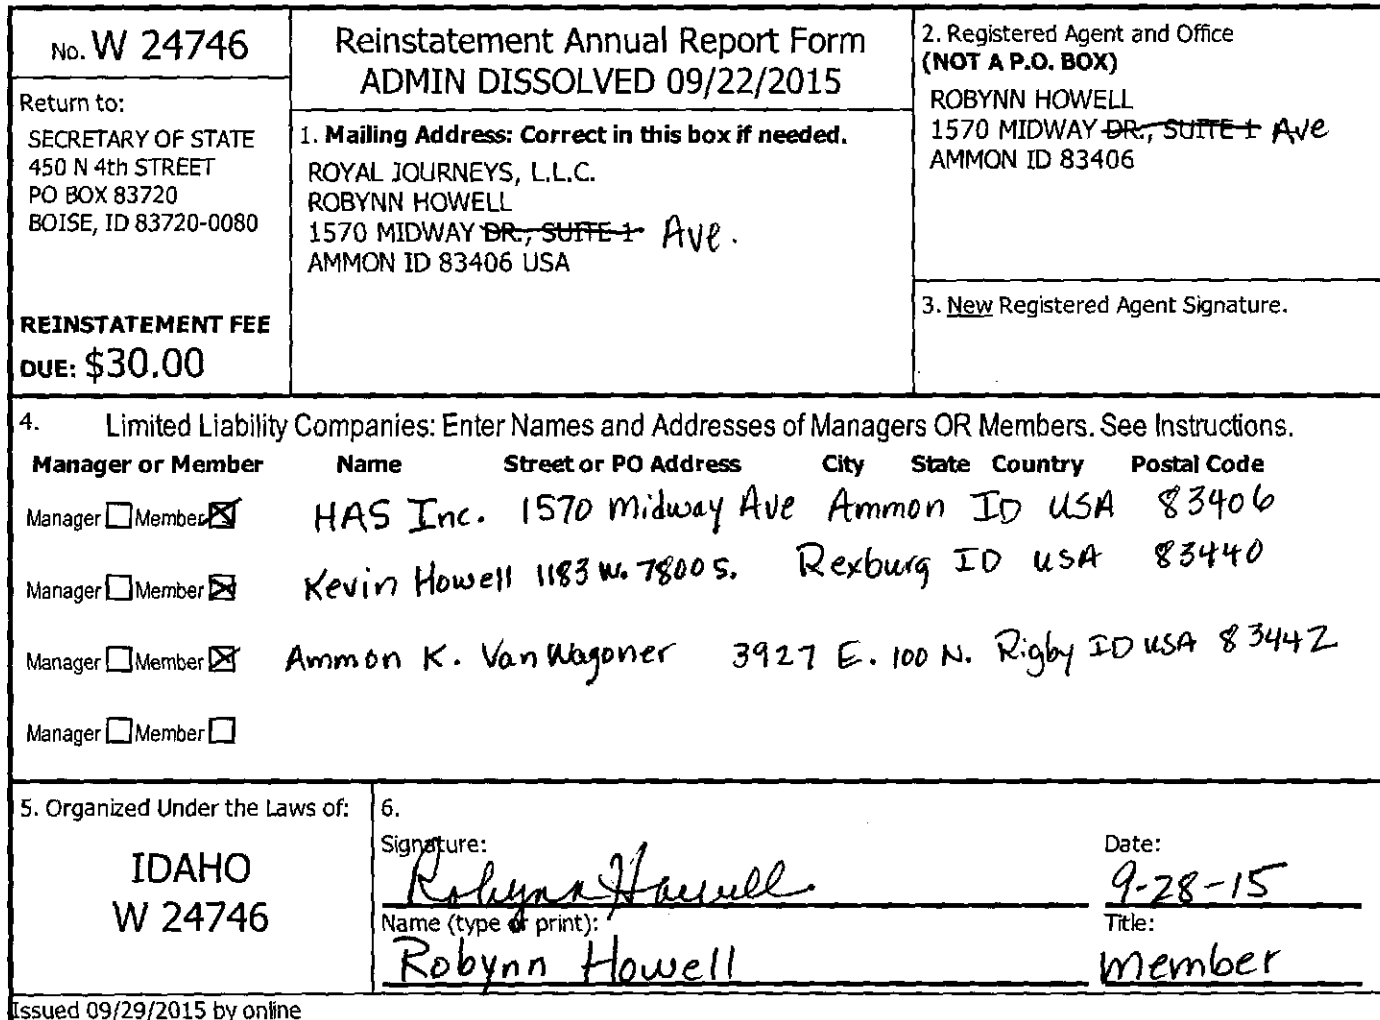 No. W 24746
Return to:
SECRETARY OF STATE
450 N 4th STREET
PO BOX 83720
BOISE, ID 83720-0080
REINSTATEMENT FEE
DUE: $30.00
Reinstatement Annual Report Form
ADMIN DISSOLVED 09/22/2015
1. Mailing Address: Correct in this box if needed.
ROYAL JOURNEYS, L.L.C.
ROBYNN HOWELL
1570 MIDWAY DR., SUITE 1 Ave.
AMMON ID 83406 USA
2. Registered Agent and Office
(NOT A P.O. BOX)
ROBYNN HOWELL
1570 MIDWAY DR., SUITE 1 Ave
AMMON ID 83406
3. New Registered Agent Signature.
4. Limited Liability Companies: Enter Names and Addresses of Managers OR Members. See Instructions.
Manager or Member Name Street or PO Address City State Country Postal Code
Manager Member HAS Inc. 1570 Midway Ave Ammon ID USA 83406
Manager Member Kevin Howell 1183 W. 7800 S. Rexburg ID USA 83440
Manager Member Ammon K. VanWagoner 3927 E. 100 N. Rigby ID USA 83442
Manager Member
5. Organized Under the Laws of:
IDAHO
W 24746
6.
Signature: Date:
Robynn Howell 9-28-15
Name (type or print): Title:
Robynn Howell member
Issued 09/29/2015 by online